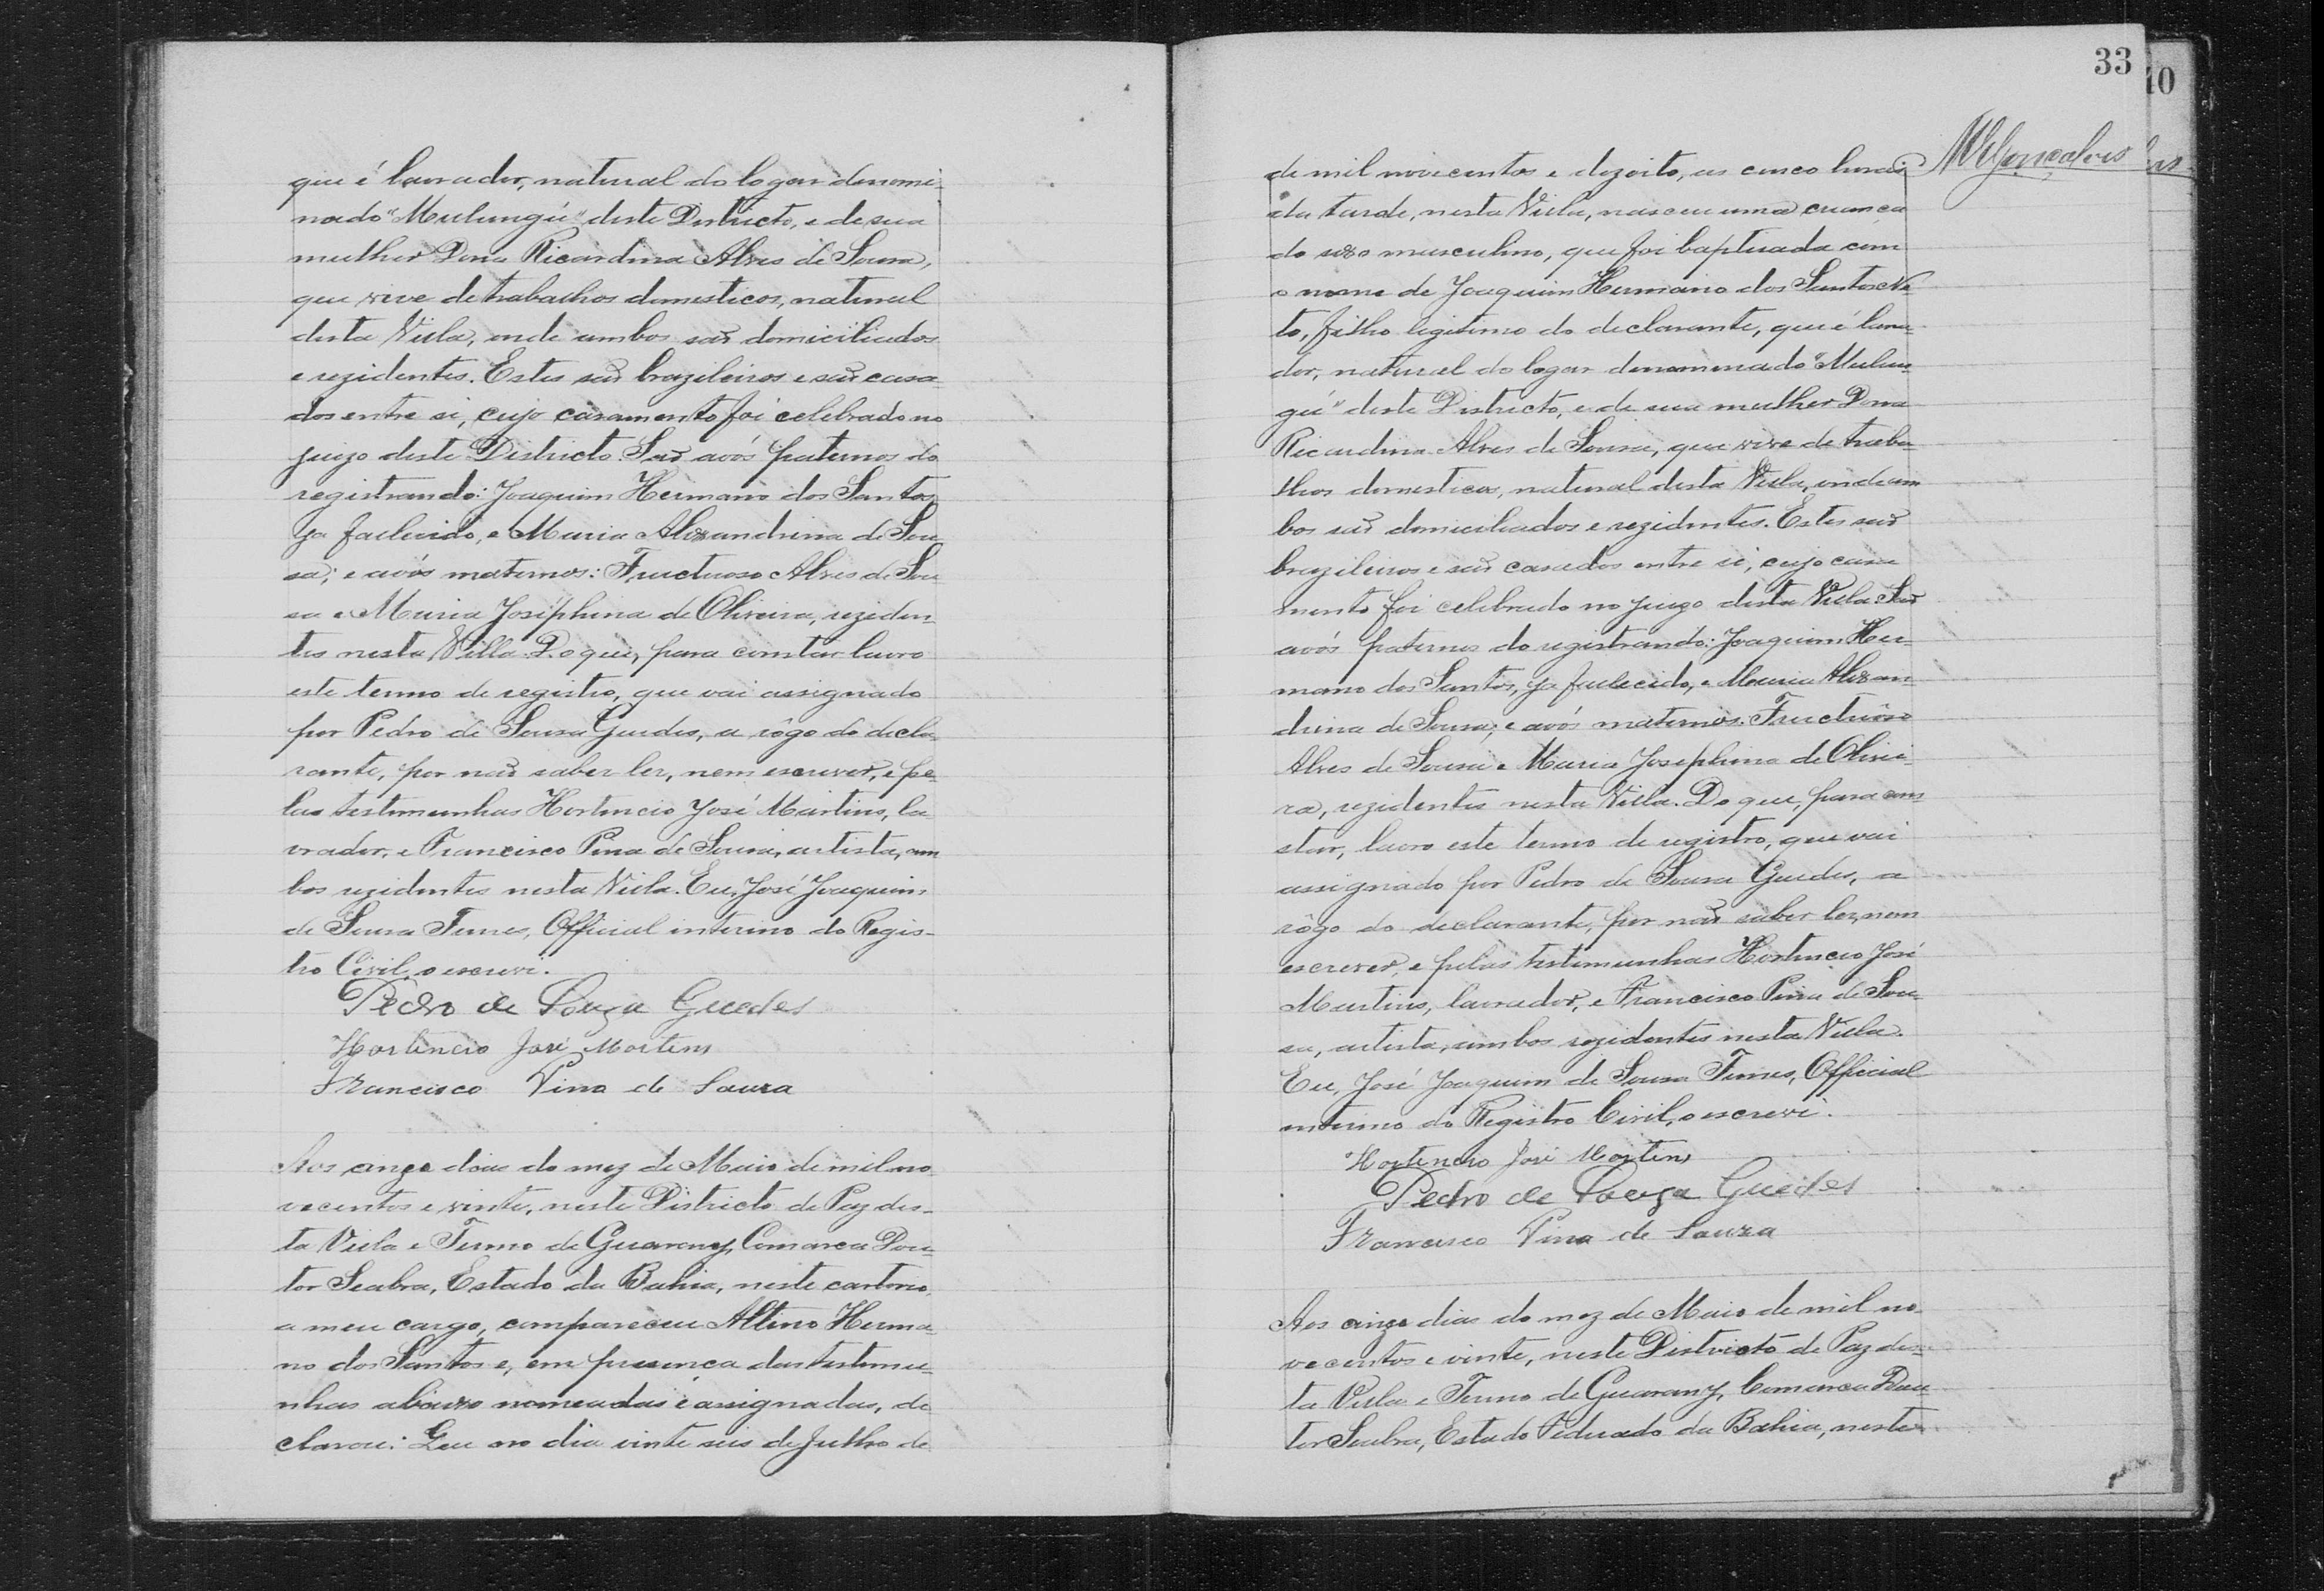 que é lavrador, natural do logar denomi-
nado "Mulungú" deste Districto, e de sua
mulher Dona Ricardina Alves de Sousa,
que vive de trabalhos domesticos, natural
desta Villa, onde ambos são domiciliados
e rezidentes. Estes são brazileiros e são casa-
dos entre si, cujo casamento foi celebrado no
juizo deste Districto. São avós paternos do
registrando: Joaquim Hermano dos Santos,
ja fallecido, e Maria Alexandrina de Sou-
sa; e avós maternos: Fructuoso Alves de Sou-
sa e Maria Joséphina de Oliveira, reziden-
tes nesta Villa. Do que, para constar lavro
este termo de registro, que vai assignado
por Pedro de Sousa Guedes, a rôgo do decla-
rante, por não saber ler, nem escrever, e pe-
las testimunhas Hortencio José Martins, la-
vrador, e Francisco Pina de Sousa, artista, am-
bos rezidentes nesta Villa. Eu, José Joaquim
de Sousa Ferres, Official interino do Regis-
tro Civil, o escrevi.
Pedro de Souza Guedes
Hortencio José Martins
Francisco Pina de Souza
Aos onze dias do mez de Maio de mil no-
vecentos e vinte, neste Districto de Paz des-
ta Villa e Termo de Guarany, Comarca Dou-
tor Seabra, Estado da Bahia, neste cartorio,
a meu cargo, compareceu Altino Herma-
no dos Santos e, em presença das testimu-
nhas abaixo nomeadas e assignadas, de-
clarou: Que no dia vinte seis de Julho de
33
10
Gonçalves
de mil novecentos e dezoito, as cinco horas
da tarde, nesta Villa, nasceu uma criança
do sexo masculino, que foi baptisada com
o nome de Joaquim Hermano dos Santos Ne-
to, filho legitimo do declarante, que é lavra-
dor, natural do logar denominado "Mulun-
gú" deste Districto, e de sua mulher Dona
Ricardina Alves de Sousa, que vive de traba-
lhos domesticos, natural desta Villa, onde am-
bos são domiciliados e rezidentes. Estes são
brazileiros e são casados entre si, cujo casa-
mento foi celebrado no juizo desta Villa. São
avós paternos do registrando: Joaquim Her-
mano dos Santos, ja fallecido, e Maria Alexan-
drina de Sousa; e avós maternos: Fructuôso
Alves de Sousa e Maria Josephina de Olivei-
ra, rezidentes nesta Villa. Do que, para con-
star, lavro este termo de registro, que vai
assignado por Pedro de Sousa Guedes, a
rôgo do declarante, por não saber ler, nem
escrever, e pelas testimunhas Hortencio José
Martins, lavrador, e Francisco Pina de Sou-
sa, artista, ambos rezidentes nesta Villa.
Eu, José Joaquim de Sousa Ferres, Official
interino do Registro Civil, o escrevi.
Hortencio José Martins
Pedro de Souza Guedes
Francisco Pina de Souza
Aos onze dias do mez de Maio de mil no-
vecentos e vinte, neste Districto de Paz des-
ta Villa e Termo de Guarany, Comarca Dou-
tor Seabra, Estado Federado da Bahia, neste